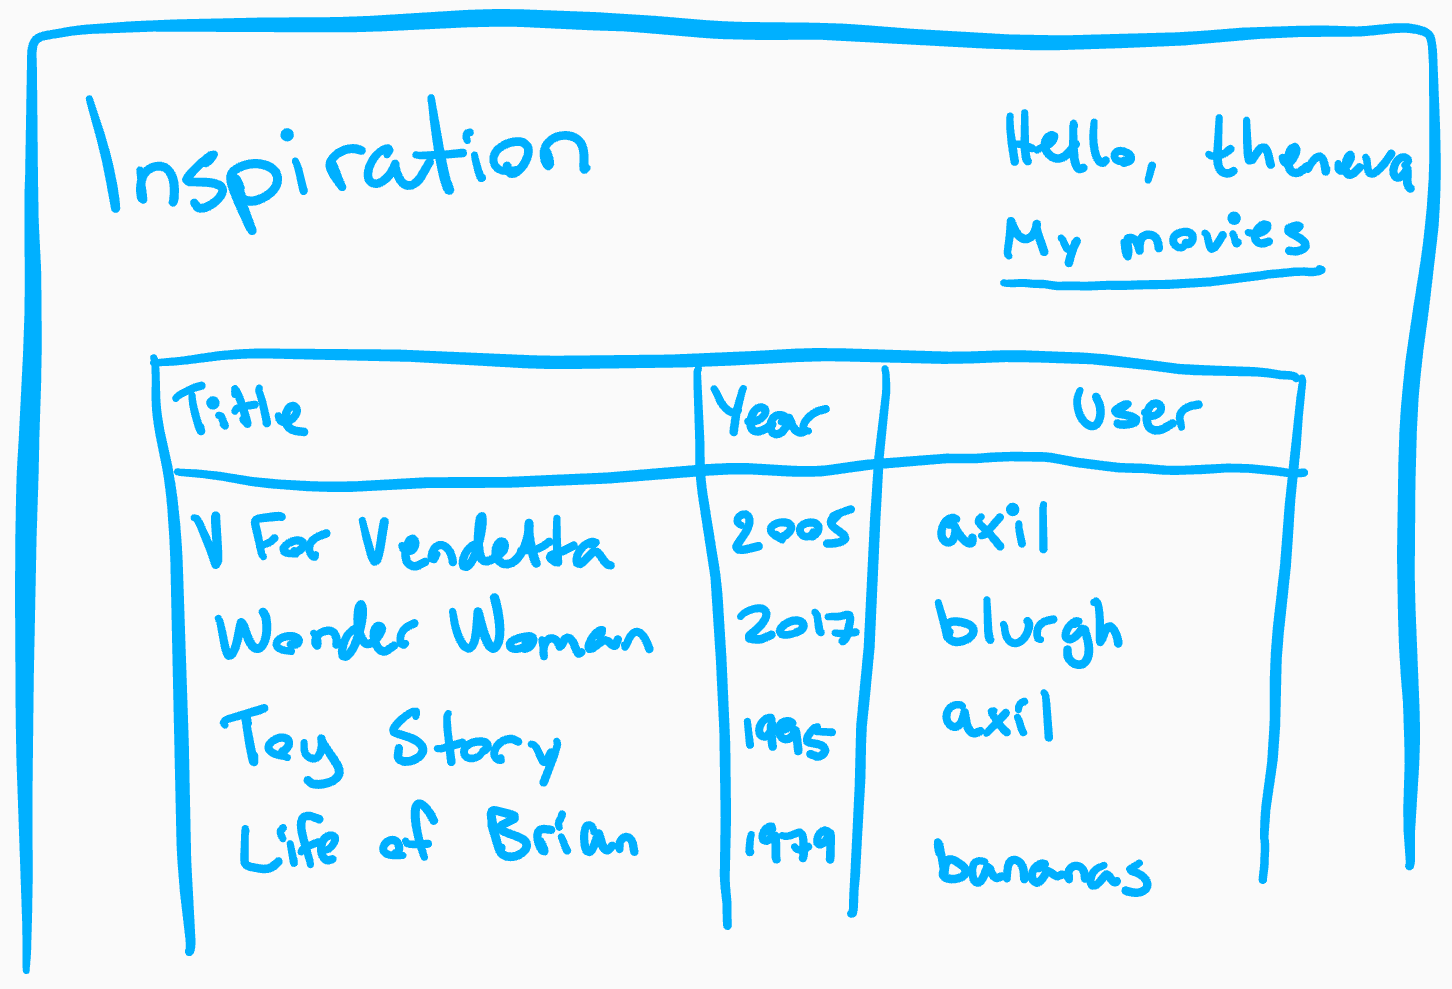 Inspiration
Hello, theneva
My movies
Title Year User
V For Vendetta 2005 axil
Wonder Woman 2017 blurgh
Toy Story 1995 axil
Life of Brian 1979 bananas